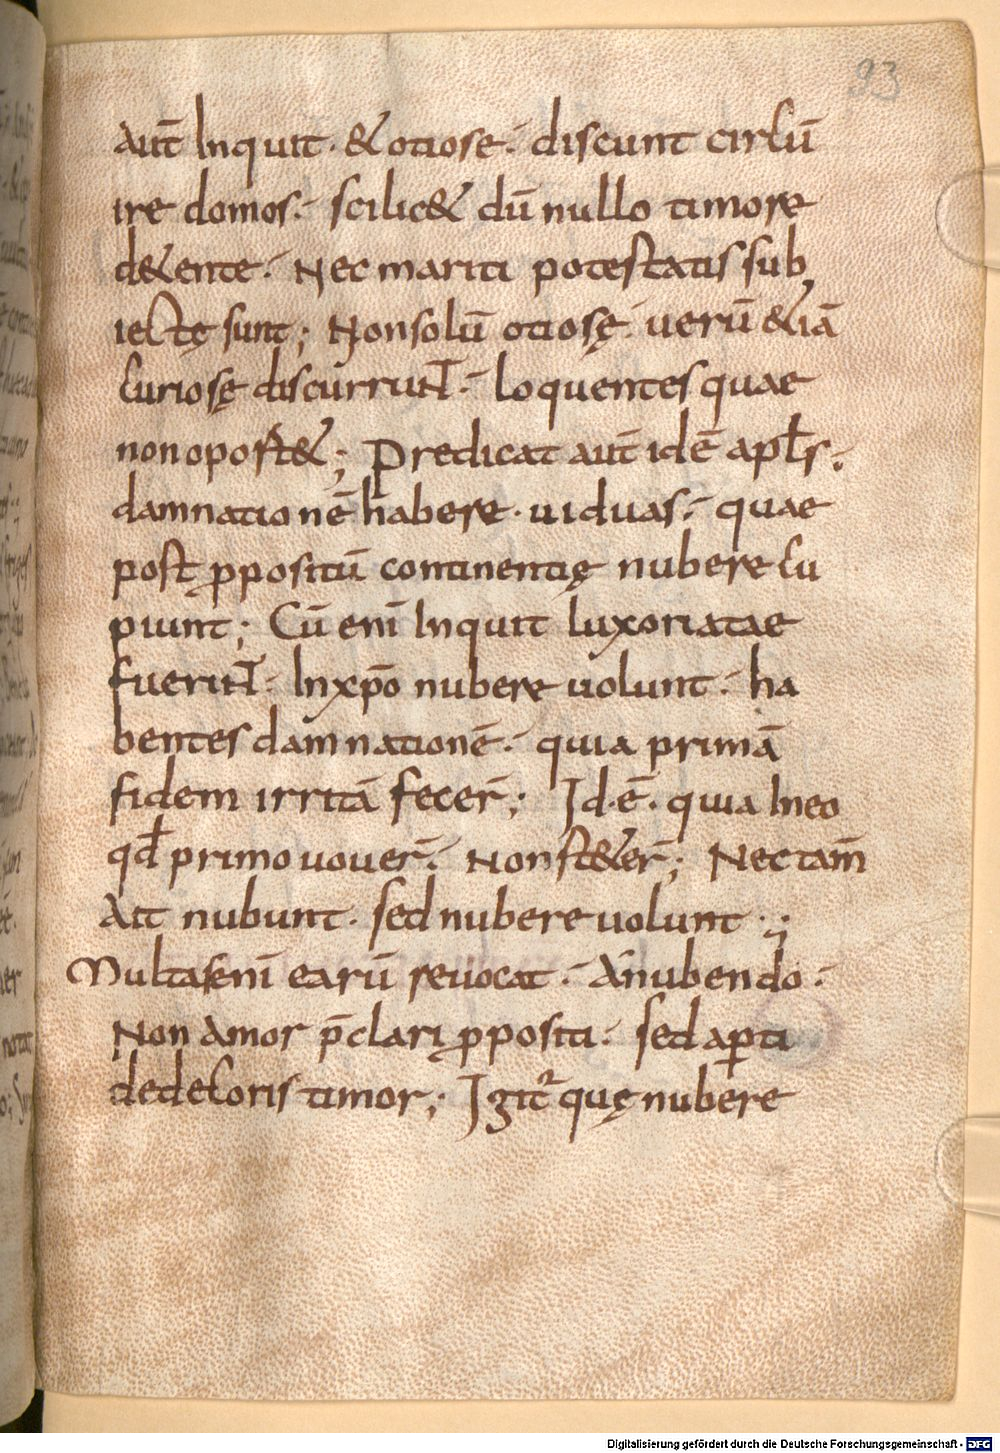 93
aut̄ Inquit · &otiose · discunt circū
ire domos · scilic& dū nullo timore
det&ente · Nec mariti potestatis sub
iectę sunt; Non solū otiosę · uerū &iā
curiosę discurrunt · loquentes quae
non oport&; Predicat aut̄ idē apl̄s ·
damnationē habere · uiduas · quae
post ꝓpositū continentię nubere cu
piunt; Cū enī Inquit luxoriatae
fuerint · In xp̄o nubere uolunt · ha
bentes damnationē · quia primā
fidem irritā fecer̄; Id · ē · quia In eo
qd̄ primo uouer̄ · Non st&er̄; Nec tam̄
Ait nubunt · sed nubere uolunt ·;
Multas enī earū reuocat · A nubendo ·
Non Amor p̄clari ꝓpositi · sed aꝑti
dedecoris timor; Igit᷑ quę nubere
Digitalisierung gefördert durch die Deutsche Forschungsgemeinschaft - DFG